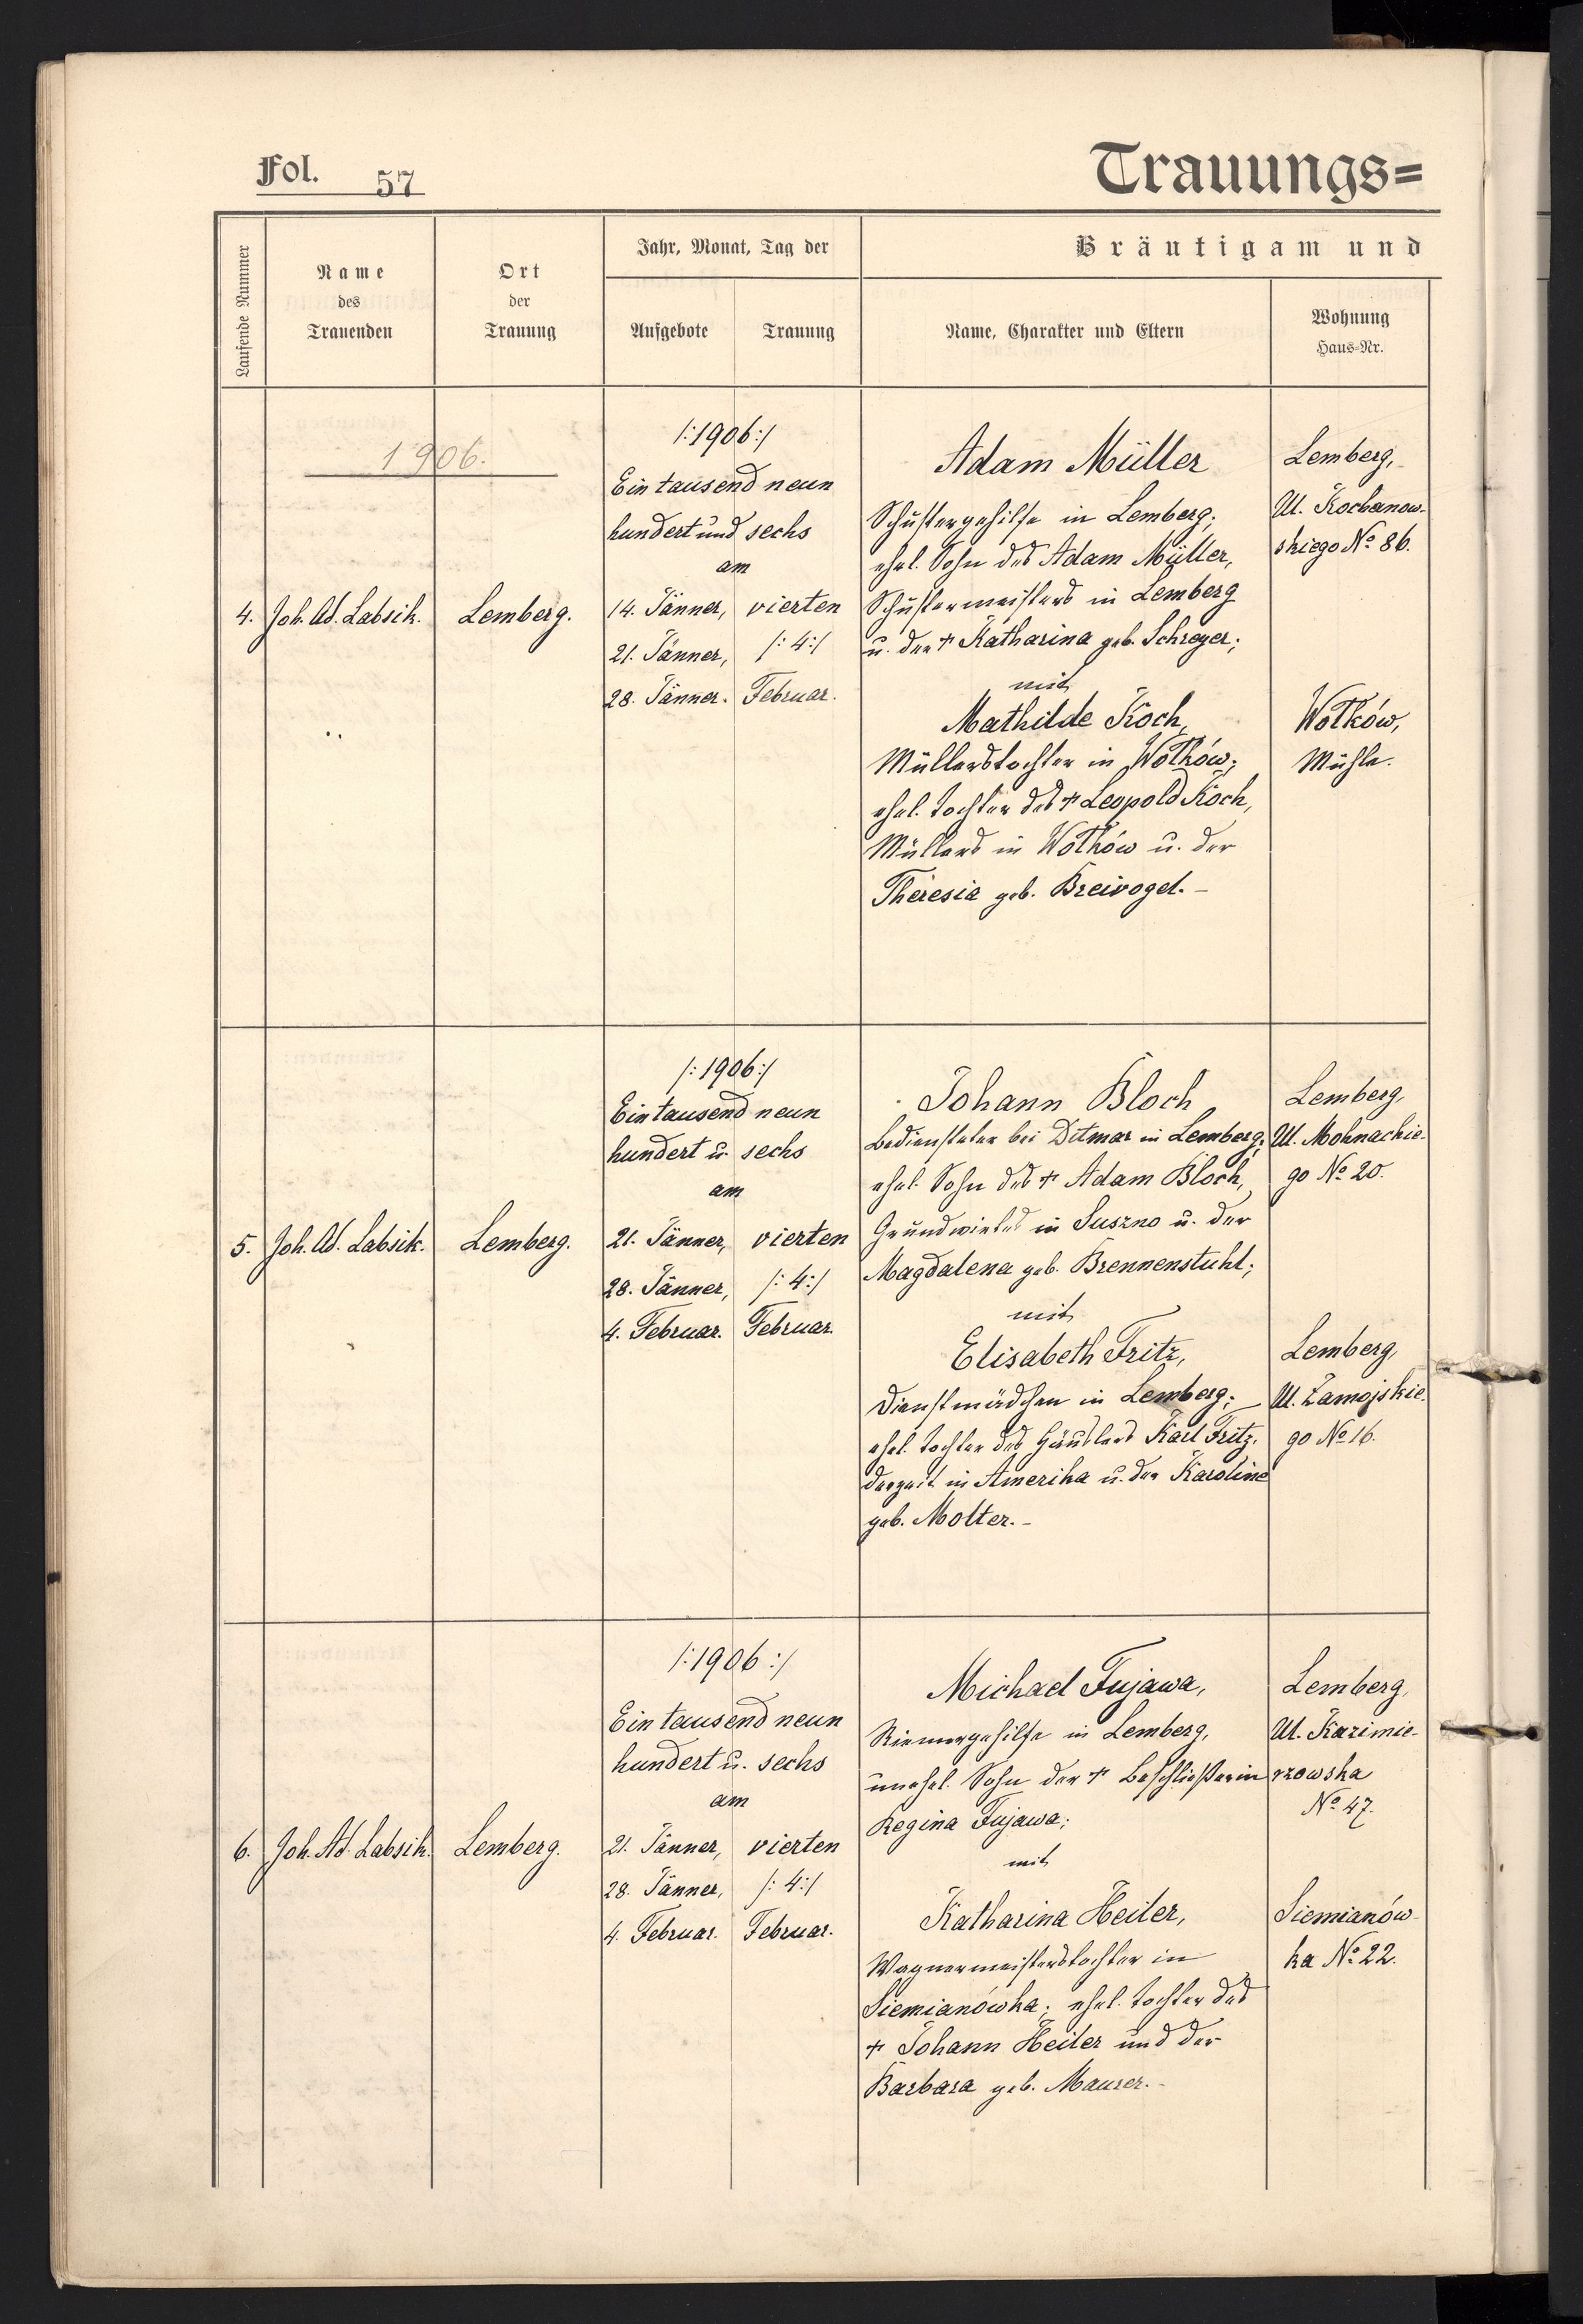 Fol. 57
Trauungs=
Laufende Nummer
Name
des
Trauenden
Ort
der
Trauung
Jahr, Monat, Tag der
Aufgebote
Trauung
Bräutigam und
Name, Charakter und Eltern
Wohnung
Haus-Nr.
1906.
4.
Joh. Ad. Labsik.
Lemberg.
/:1906:/
Ein tausend neun
hundert und sechs
am
14. Jänner,
21. Jänner,
28. Jänner.
vierten
/:4:/
Februar.
Adam Müller
Schustergehilfe in Lemberg;
ehel. Sohn des Adam Müller,
Schustermeisters in Lemberg
u. der † Katharina geb. Schreyer;
mit
Mathilde Koch,
Müllerstochter in Wołków;
ehel. Tochter des † Leopold Koch,
Müllers in Wołków u. der
Theresia geb. Breivogel.-
Lemberg,
Ul. Kochanow-
skiego No. 86.
Wołków,
Mühle.
5.
Joh. Ad. Labsik.
Lemberg.
/:1906:/
Ein tausend neun
hundert u. sechs
am
21. Jänner,
28. Jänner,
4. Februar.
vierten
/:4:/
Februar.
Johann Bloch
Bediensteter bei Ditmar in Lemberg;
ehel. Sohn des † Adam Bloch,
Grundwirtes in Suszno u. der
Magdalena geb. Brennenstuhl;
mit
Elisabeth Fritz,
Dienstmädchen in Lemberg;
ehel. Tochter des Häuslers Karl Fritz,
derzeit in Amerika u. der Karoline
geb. Molter.-
Lemberg,
Ul. Mohnackie-
go No. 20.
Lemberg,
Ul. Zamojskie-
go No. 16.
6.
Joh. Ad. Labsik.
Lemberg.
/:1906:/
Ein tausend neun
hundert u. sechs
am
21. Jänner,
28. Jänner,
4. Februar.
vierten
/:4:/
Februar.
Michael Fujawa,
Riemergehilfe in Lemberg,
unehel. Sohn der † Beschließerin
Regina Fujawa;
mit
Katharina Heiler,
Wagnermeisterstochter in
Siemianówka; ehel. Tochter des
† Johann Heiler und der
Barbara geb. Maurer.-
Lemberg,
Ul. Kazimie-
rzowska
No. 47.
Siemianów-
ka No. 22.